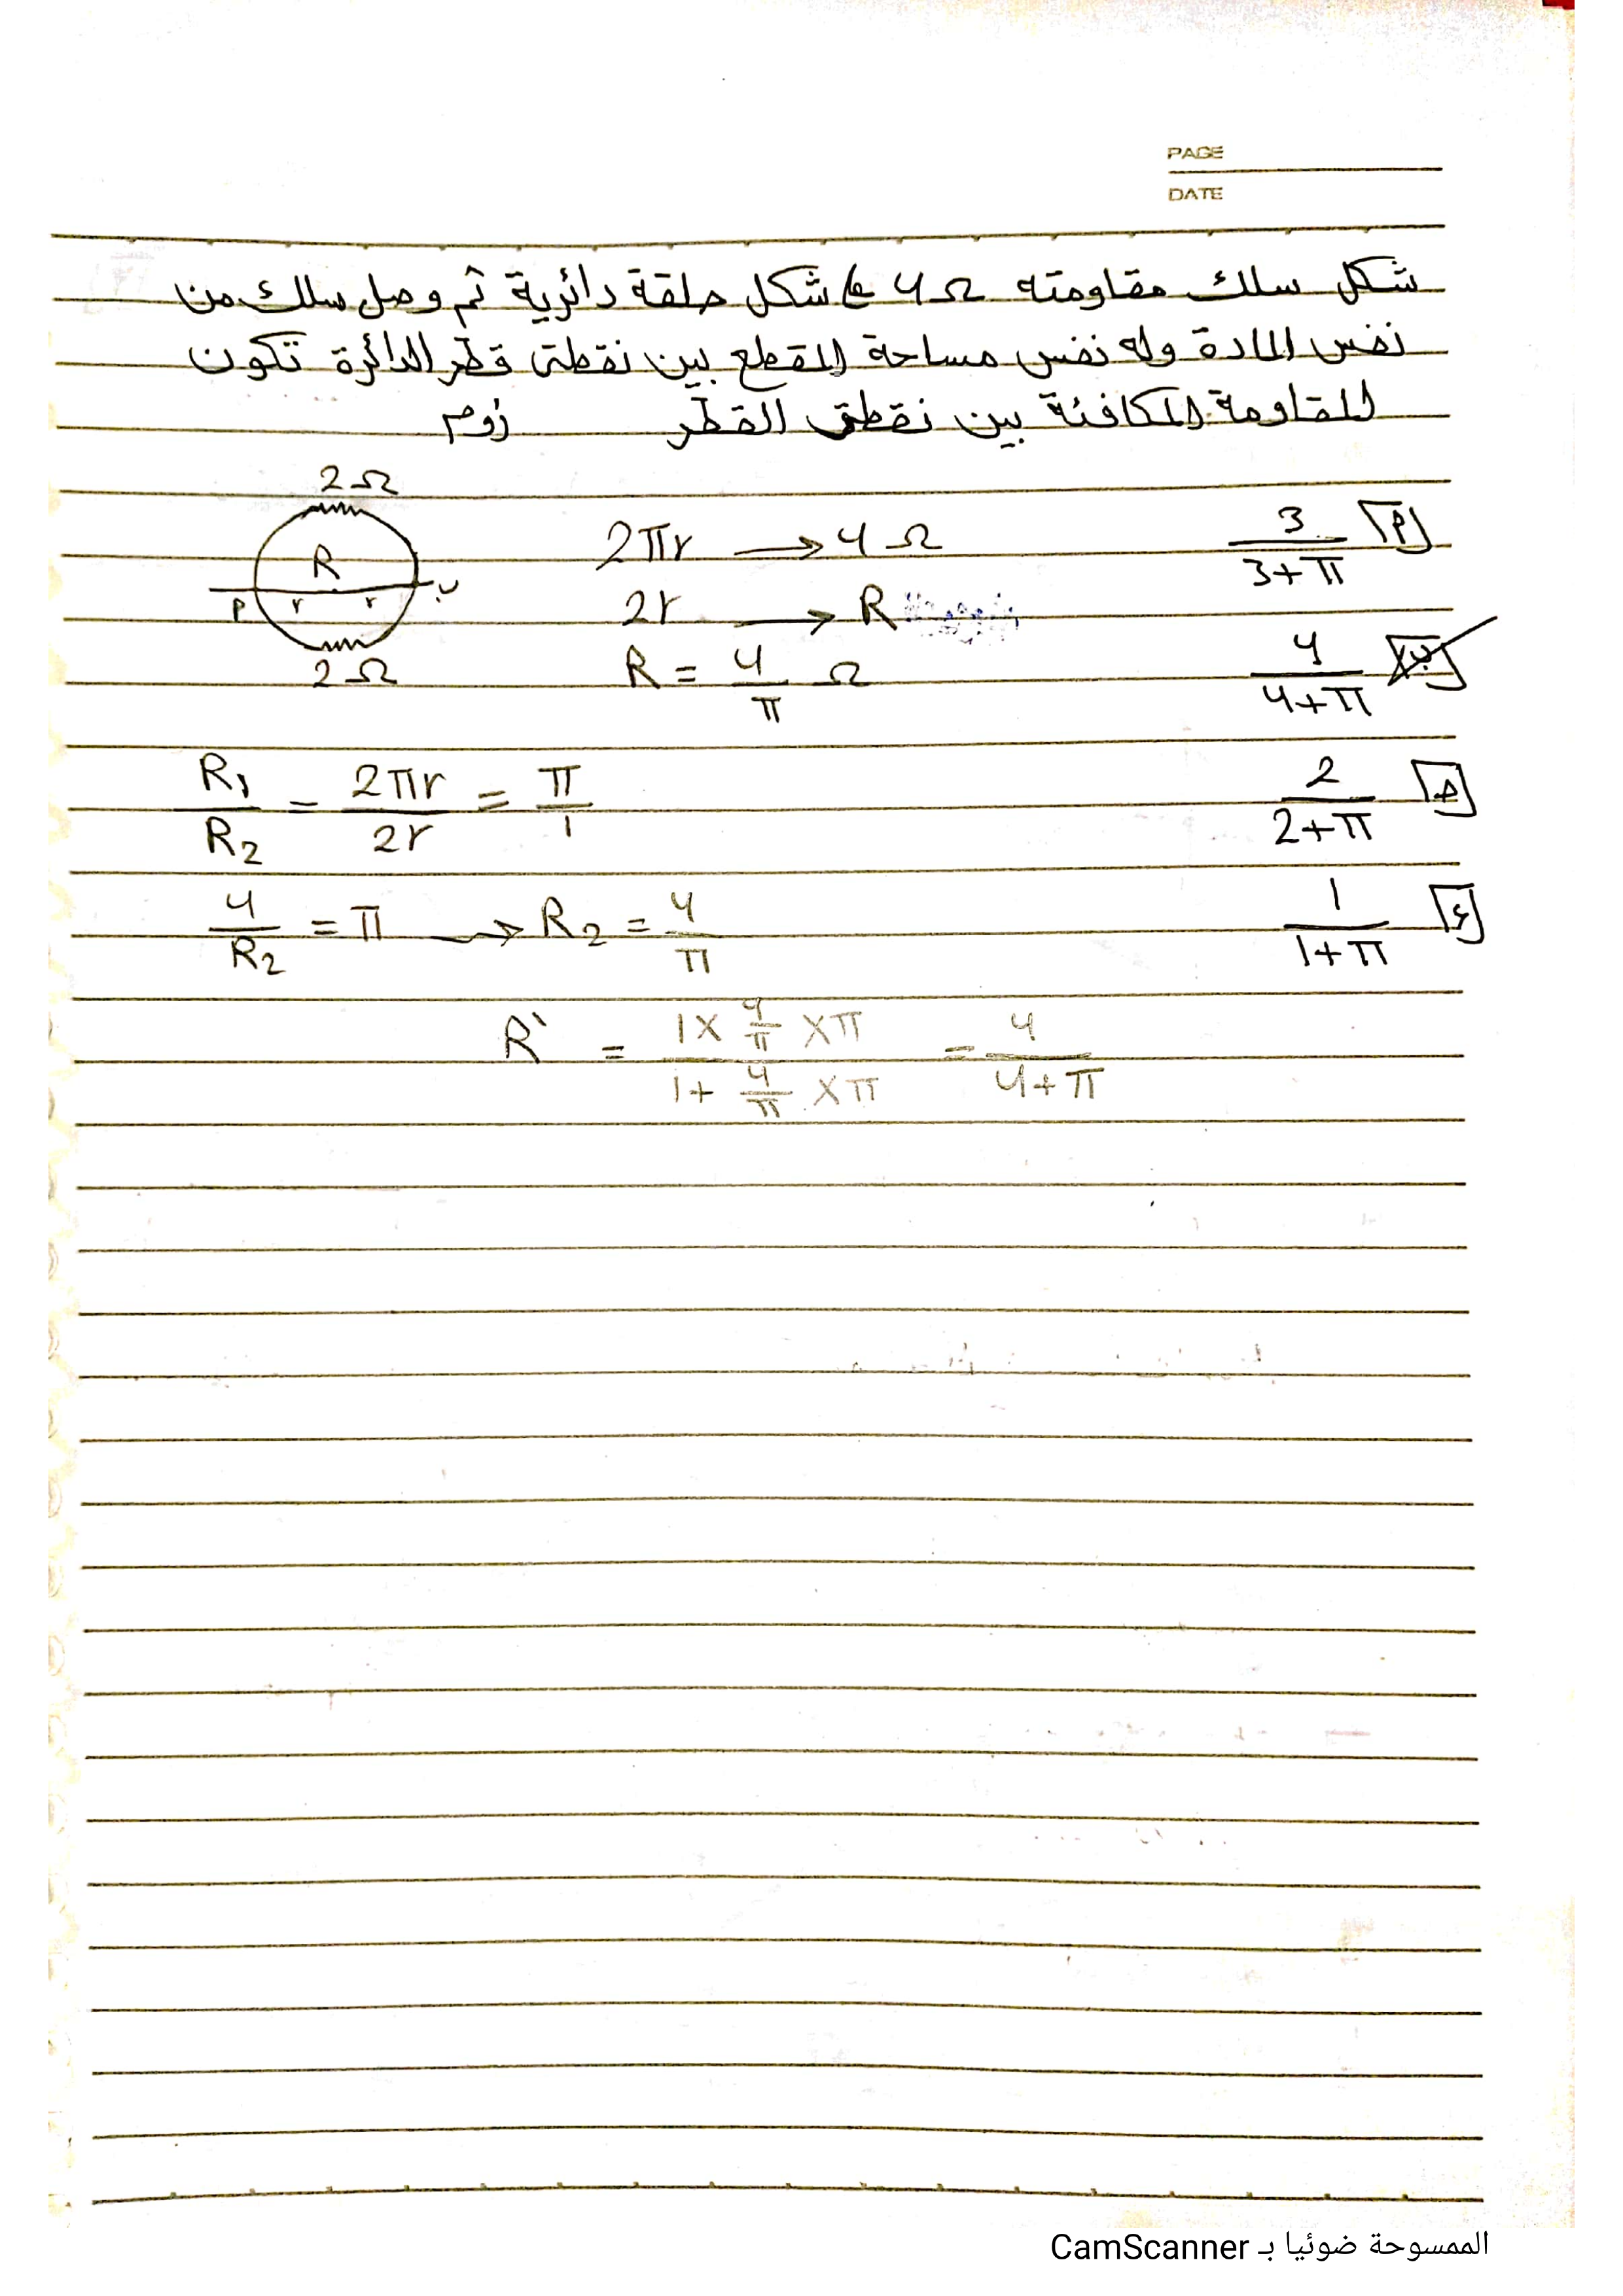 PAGE
DATE
شكل سلك مقاومته 4Ω على شكل حلقة دائرية ثم وصل سلك من
نفس المادة وله نفس مساحة المقطع بين نقطتى قطر الدائرة تكون
المقاومة المكافئة بين نقطتى القطر أوم
2Ω
R
أ r r ب
2Ω
2πr → 4Ω
2r → R
R = 4/π Ω
أ 3/(3+π)
ب 4/(4+π)
ج 2/(2+π)
د 1/(1+π)
R₁/R₂ = 2πr/2r = π/1
4/R₂ = π → R₂ = 4/π
R` = (1 × 4/π × π)/(1 + 4/π × π) = 4/(4+π)
الممسوحة ضوئيا بـ CamScanner